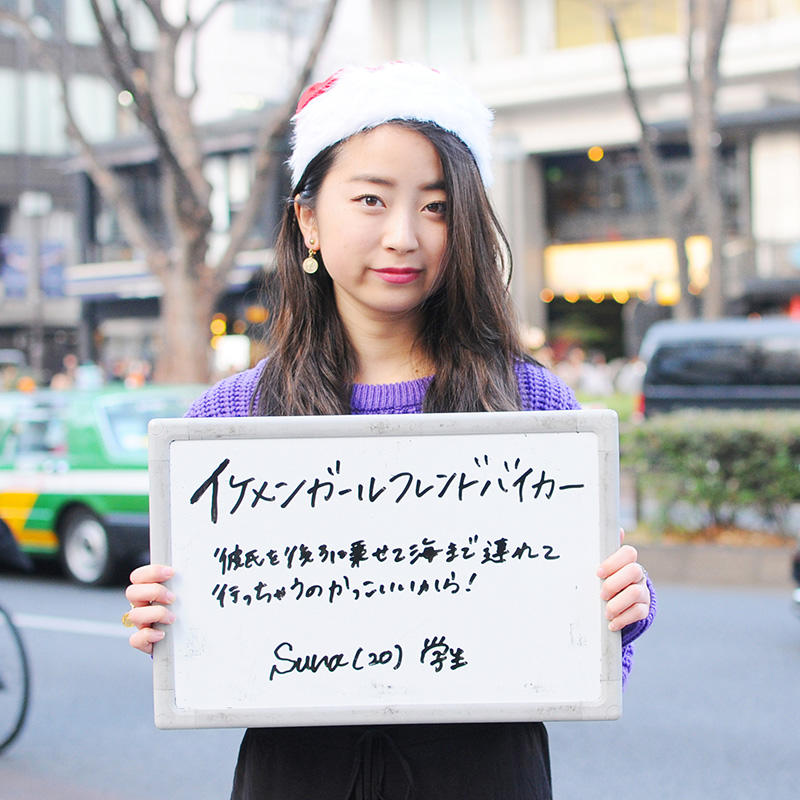 イケメンガールフレンドバイカー
彼氏を後ろに乗せて海まで連れて
行っちゃうのかっこいいから!
Suna(20) 学生